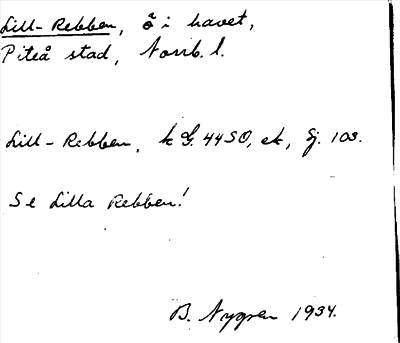 Lill-Rebben, ö i havet,
Piteå stad, Norrb. l.
Lill-Rebben, k G. 44 SO, ek, Sj. 103.
Se Lilla Rebben!
B. Nygren 1934.